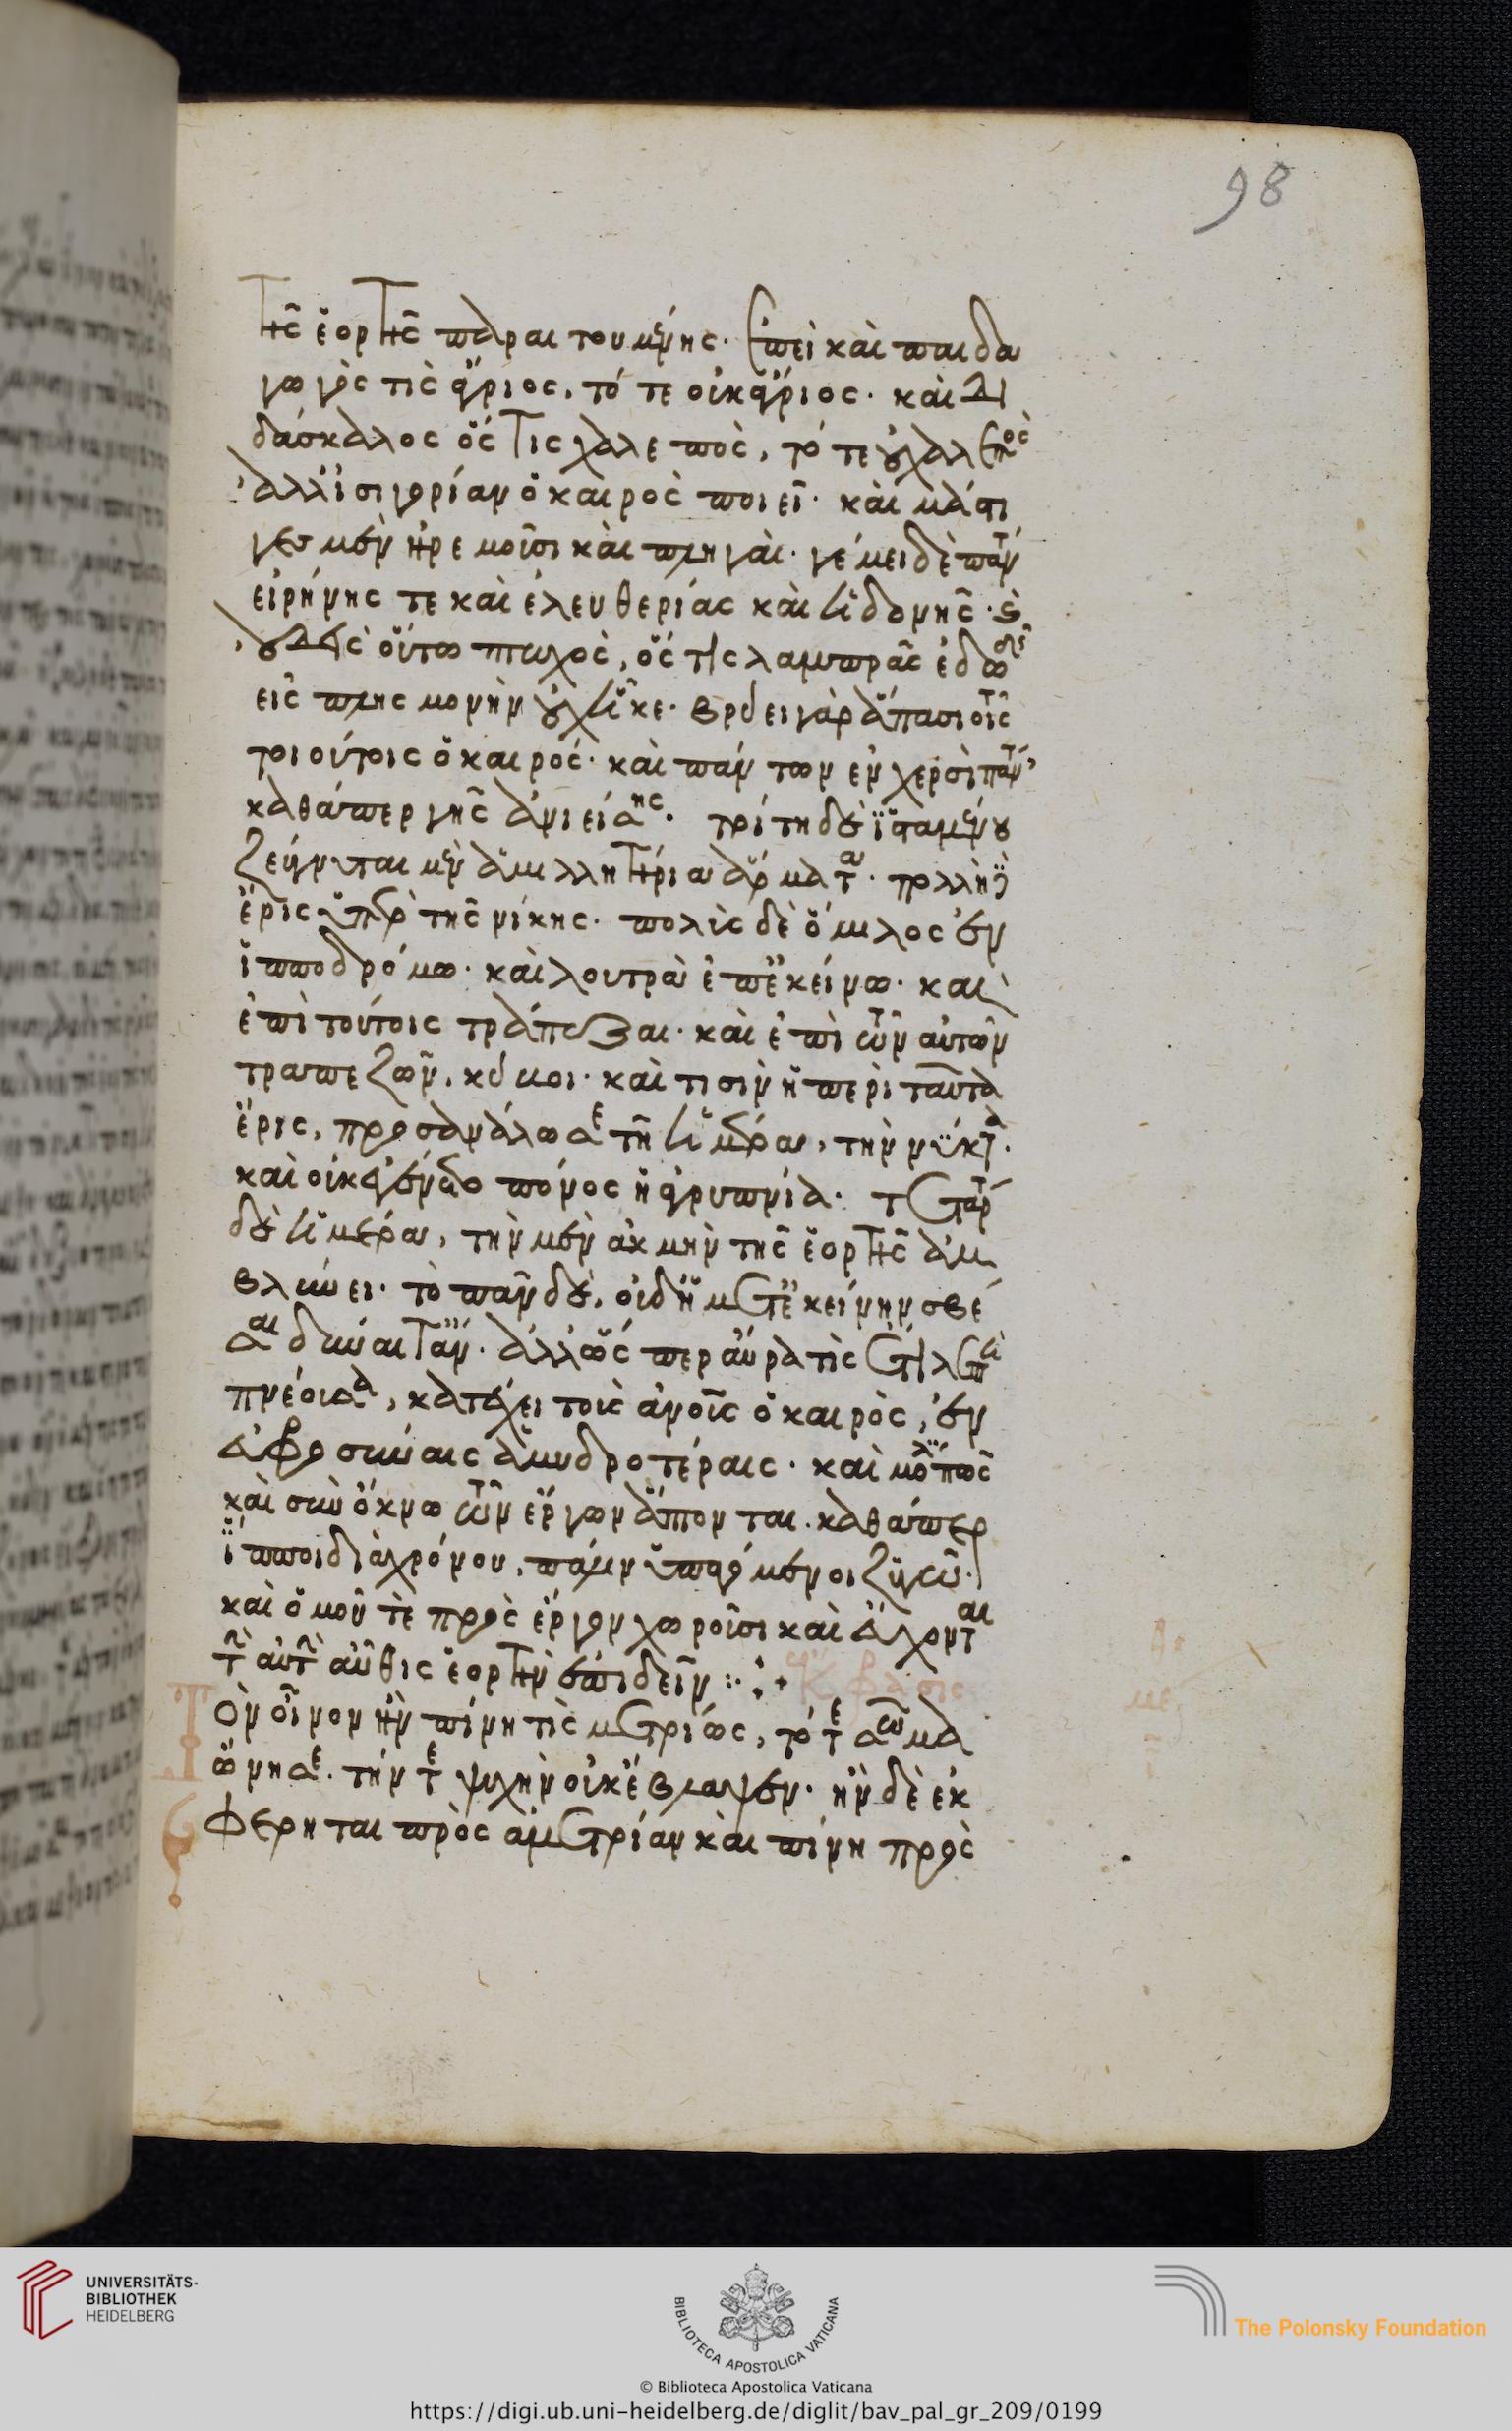 98
τῆς ἑορτῆς παραιτουμένης. ἐπεὶ καὶ παιδα
γωγὸς τὶς ἄγριος, τότε οὐκ ἄγριος. καὶ δι
δάσκαλος ὅς τις χαλεπὸς, τότε οὐ χαλεπὸς
ἀλλ' ἰσηγορίαν ὁ καιρὸς ποιεῖ. καὶ μάστι
γες μὲν ἠρεμοῦσι καὶ πληγαὶ. γέμει δὲ πάντα
εἰρήνης τε καὶ ἐλευθερίας καὶ ἡδονῆς. καὶ
οὐδεὶς οὕτω πτωχὸς, ὅς τις λαμπρᾶς ἐδωδῆς
εἰς πλησμονὴν οὐχ ἧκε. βρύει γὰρ ἅπασι τοῖς
τοιούτοις ὁ καιρός. καὶ πάντων ἐν χερσὶ πάντα,
καθάπερ γῆς ἀνιείσης. τρίτη δὲ ἱσταμένου
ζεύγνυται μὲν ἁμιλλητήρια ἅρματα. πολλὴ δ'
ἔρις ὑπὲρ τῆς νίκης. πολὺς δὲ ὅμιλος ἐν
ἱπποδρόμω. καὶ λουτρὰ ἐπ' ἐκείνω. καὶ
ἐπὶ τούτοις τράπεζαι. καὶ ἐπὶ τῶν αὐτῶν
τραπεζῶν, κύβοι. καὶ τισὶν ἡ περὶ ταῦτα
ἔρις, προσανάλωσε τῆ ἡμέρα, τὴν νύκτα.
καὶ οὐκ πόνος ἡ ἀγρυπνία. τετάρτη
δὲ ἡμέρα, τὴν μὲν ἀκμὴν τῆς ἑορτῆς ἀμ
βλύνει. τὸ πᾶν δὲ, οὐδ' ἡ μετ' ἐκείνην σβέ
σαι δύναιτ' ἄν. ἀλλ' ὥσπερ αὔρα τὶς ἔτι λεπτὴ
πνέουσα, κατέχει τοὺς ἀνους ὁ καιρὸς, ἐν
εὐφροσύναις ἀμυδροτέραις. καὶ μόλις πως
καὶ σὺν ὄκνω τῶν ἔργων ἅπτονται. καθάπερ
ἵπποι διὰ χρόνου, πάλιν ὑπαγόμενοι ζυγῶ.
καὶ ὁμοῦ τὲ πρὸς ἔργον χωροῦσι καὶ εὔχονται
τὴν αὐτὴν αὖθις ἑορτὴν ἐπιδεῖν
Τὸν οἶνον ἢν πίνη τὶς μετρίως, τό τε σῶμα
ὤνησε. τήν τε ψυχὴν οὐκ ἔβλαψεν. ἢν δὲ ἐκ
φέρηται πρὸς ἀμετρίαν καὶ πίνη πρὸς
UNIVERSITÄTS-
BIBLIOTHEK
HEIDELBERG
BIBLIOTECA APOSTOLICA VATICANA
The Polonsky Foundation
© Biblioteca Apostolica Vaticana
https://digi.ub.uni-heidelberg.de/diglit/bav_pal_gr_209/0199